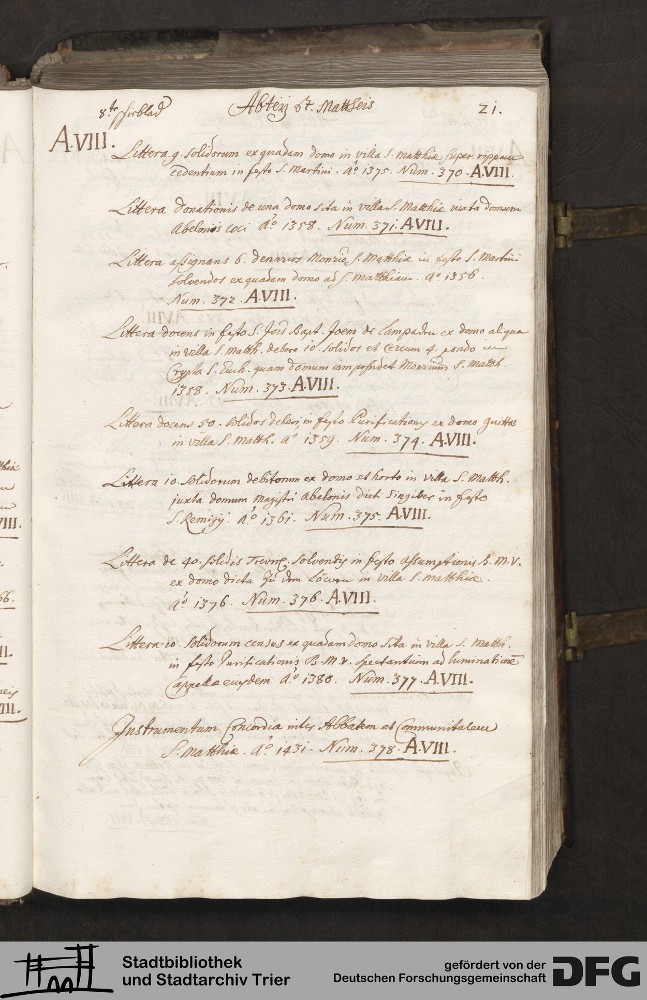 8.te
Abteÿ St. Mattheis
21.
A.VIII.
Littera 9. solidorum ex quadam domo in villa S. Matthiæ super
cedentium in festo S. Martini. Aº 1375. Num. 370. A.VIII.
Littera donationis de una domo sita in villa S. Matthiæ iuxta domum
Abelonis loci Aº 1358. Num. 371. A.VIII.
Littera assignans 6. denarios S. Matthiæ in festo S. Martini
solvendos ex quadam domo ad S. Matthiam. Aº 1356.
Num. 372. A.VIII.
Littera docens in festo S. Jois Bapt. Joem de Lampaden ex domo aliqua
in villa S. Matth. debere 10. solidos et Cereum 4. pondo in
Crypta S. Euch. quam domum iam possidet S. Matth.
1358. Num. 373. A.VIII.
Littera docens 50. solidos deberi in festo Purificationis ex domo
in villa S. Matth. aº 1359. Num. 374. A.VIII.
Littera 10. solidorum debitorum ex domo et horto in villa S. Matth.
juxta domum Magistri Abelonis dicti Singiber in festo
S. Remigij. Aº 1361. Num. 375. A.VIII.
Littera de 40. solidis solvendis in festo Assumptionis B. M. V.
ex domo dicta in villa S. Matthiæ.
Aº 1376. Num. 376. A.VIII.
Littera 10. solidorum census ex quadam domo sita in villa S. Matth.
in festo Purificationis B. M. V. spectantium ad
Cappellæ eiusdem Aº 1380. Num. 377. A.VIII.
Instrumentum Concordiæ inter Abbatem et Communitatem
S. Matthiæ. Aº 1431. Num. 378. A.VIII.
Stadtbibliothek
und Stadtarchiv Trier
gefördert von der
Deutschen Forschungsgemeinschaft
DFG